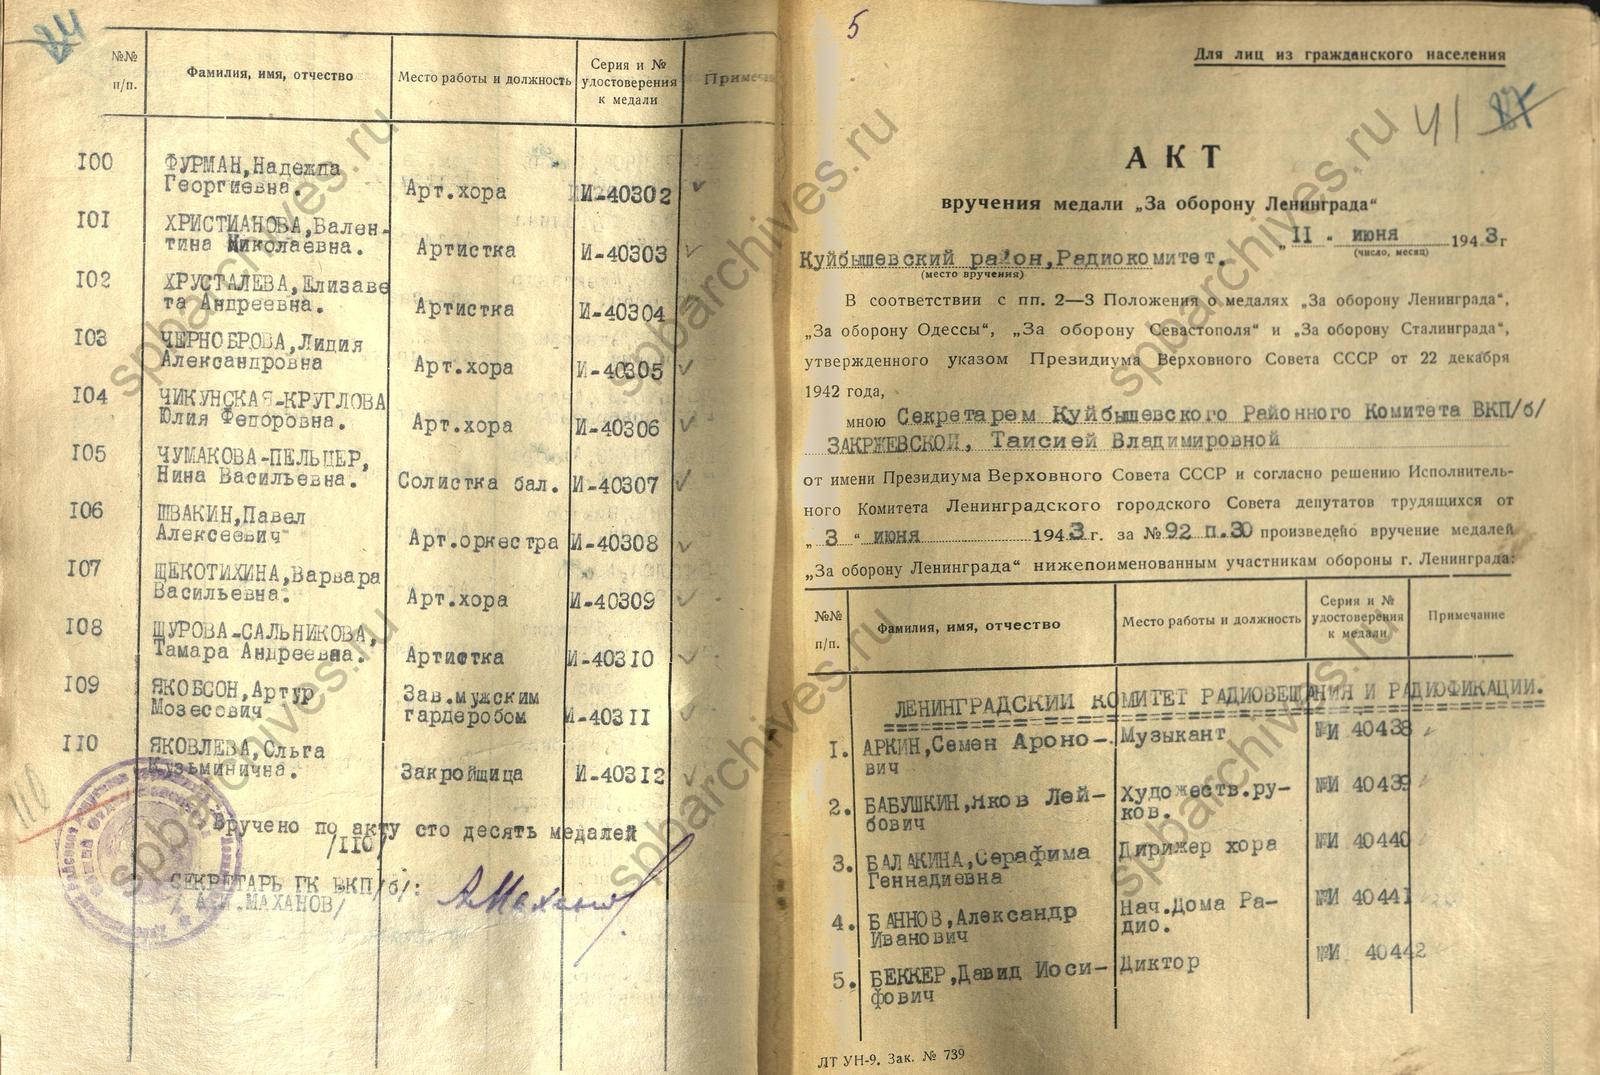 №№
п/п.
Фамилия, имя, отчество
Место работы и должность
Серия и №
удостоверения
к медали
Примеча
100 ФУРМАН,Надежда
Георгиевна. Арт.хора И-40302
101 ХРИСТИАНОВА,Вален-
тина Николаевна. Артистка И-40303
102 ХРУСТАЛЕВА,Елизаве
та Андреевна. Артистка И-40304
103 ЧЕРНОБРОВА,Лидия
Александровна Арт.хора И-40305
104 ЧИКУНСКАЯ-КРУГЛОВА
Юлия Федоровна. Арт.хора И-40306
105 ЧУМАКОВА-ПЕЛЬЦЕР,
Нина Васильевна. Солистка бал. И-40307
106 ШВАКИН,Павел
Алексеевич Арт.оркестра И-40308
107 ЩЕКОТИХИНА,Варвара
Васильевна. Арт.хора И-40309
108 ЩУРОВА-САЛЬНИКОВА,
Тамара Андреевна. Артистка И-40310
109 ЯКОБСОН,Артур Зав.мужским
Мозесович гардеробом И-40311
110 ЯКОВЛЕВА,Ольга
Кузьминична. Закройщица И-40312
Вручено по акту сто десять медалей
/110/
СЕКРЕТАРЬ ГК ВКП/б/:
МАХАНОВ/
5
Для лиц из гражданского населения
41 87
АКТ
вручения медали „За оборону Ленинграда“
„11 - июня 1943г
(число, месяц)
Куйбышевский район,Радиокомитет.
(место вручения)
В соответствии с пп. 2—3 Положения о медалях „За оборону Ленинграда“,
„За оборону Одессы“, „За оборону Севастополя“ и „За оборону Сталинграда“,
утвержденного указом Президиума Верховного Совета СССР от 22 декабря
1942 года,
мною Секретарем Куйбышевского Районного Комитета ВКП/б/
ЗАКРЖЕВСКОЙ, Таисией Владимировной
от имени Президиума Верховного Совета СССР и согласно решению Исполнитель-
ного Комитета Ленинградского городского Совета депутатов трудящихся от
„ 3 “ июня 1943г. за № 92 п.30 произведено вручение медалей
„За оборону Ленинграда“ нижепоименованным участникам обороны г. Ленинграда:
№№
п/п.
Фамилия, имя, отчество
Место работы и должность
Серия и №
удостоверения
к медали
Примечание
ЛЕНИНГРАДСКИЙ КОМИТЕТ РАДИОВЕЩАНИЯ И РАДИОФИКАЦИИ.
1. АРКИН,Семен Ароно- Музыкант №И 40438
вич
2. БАБУШКИН,Яков Лей- Художеств.ру- №И 40439
бович ков.
3. БАЛАКИНА,Серафима Дирижер хора №И 40440
Геннадиевна
4. БАННОВ,Александр Нач.Дома Ра- №И 40441
Иванович дио.
5. БЕККЕР,Давид Иоси- Диктор №И 40442
фович
ЛТ УН-9. Зак. № 739
spbarchives.ru
spbarchives.ru
spbarchives.ru
spbarchives.ru
spbarchives.ru
spbarchives.ru